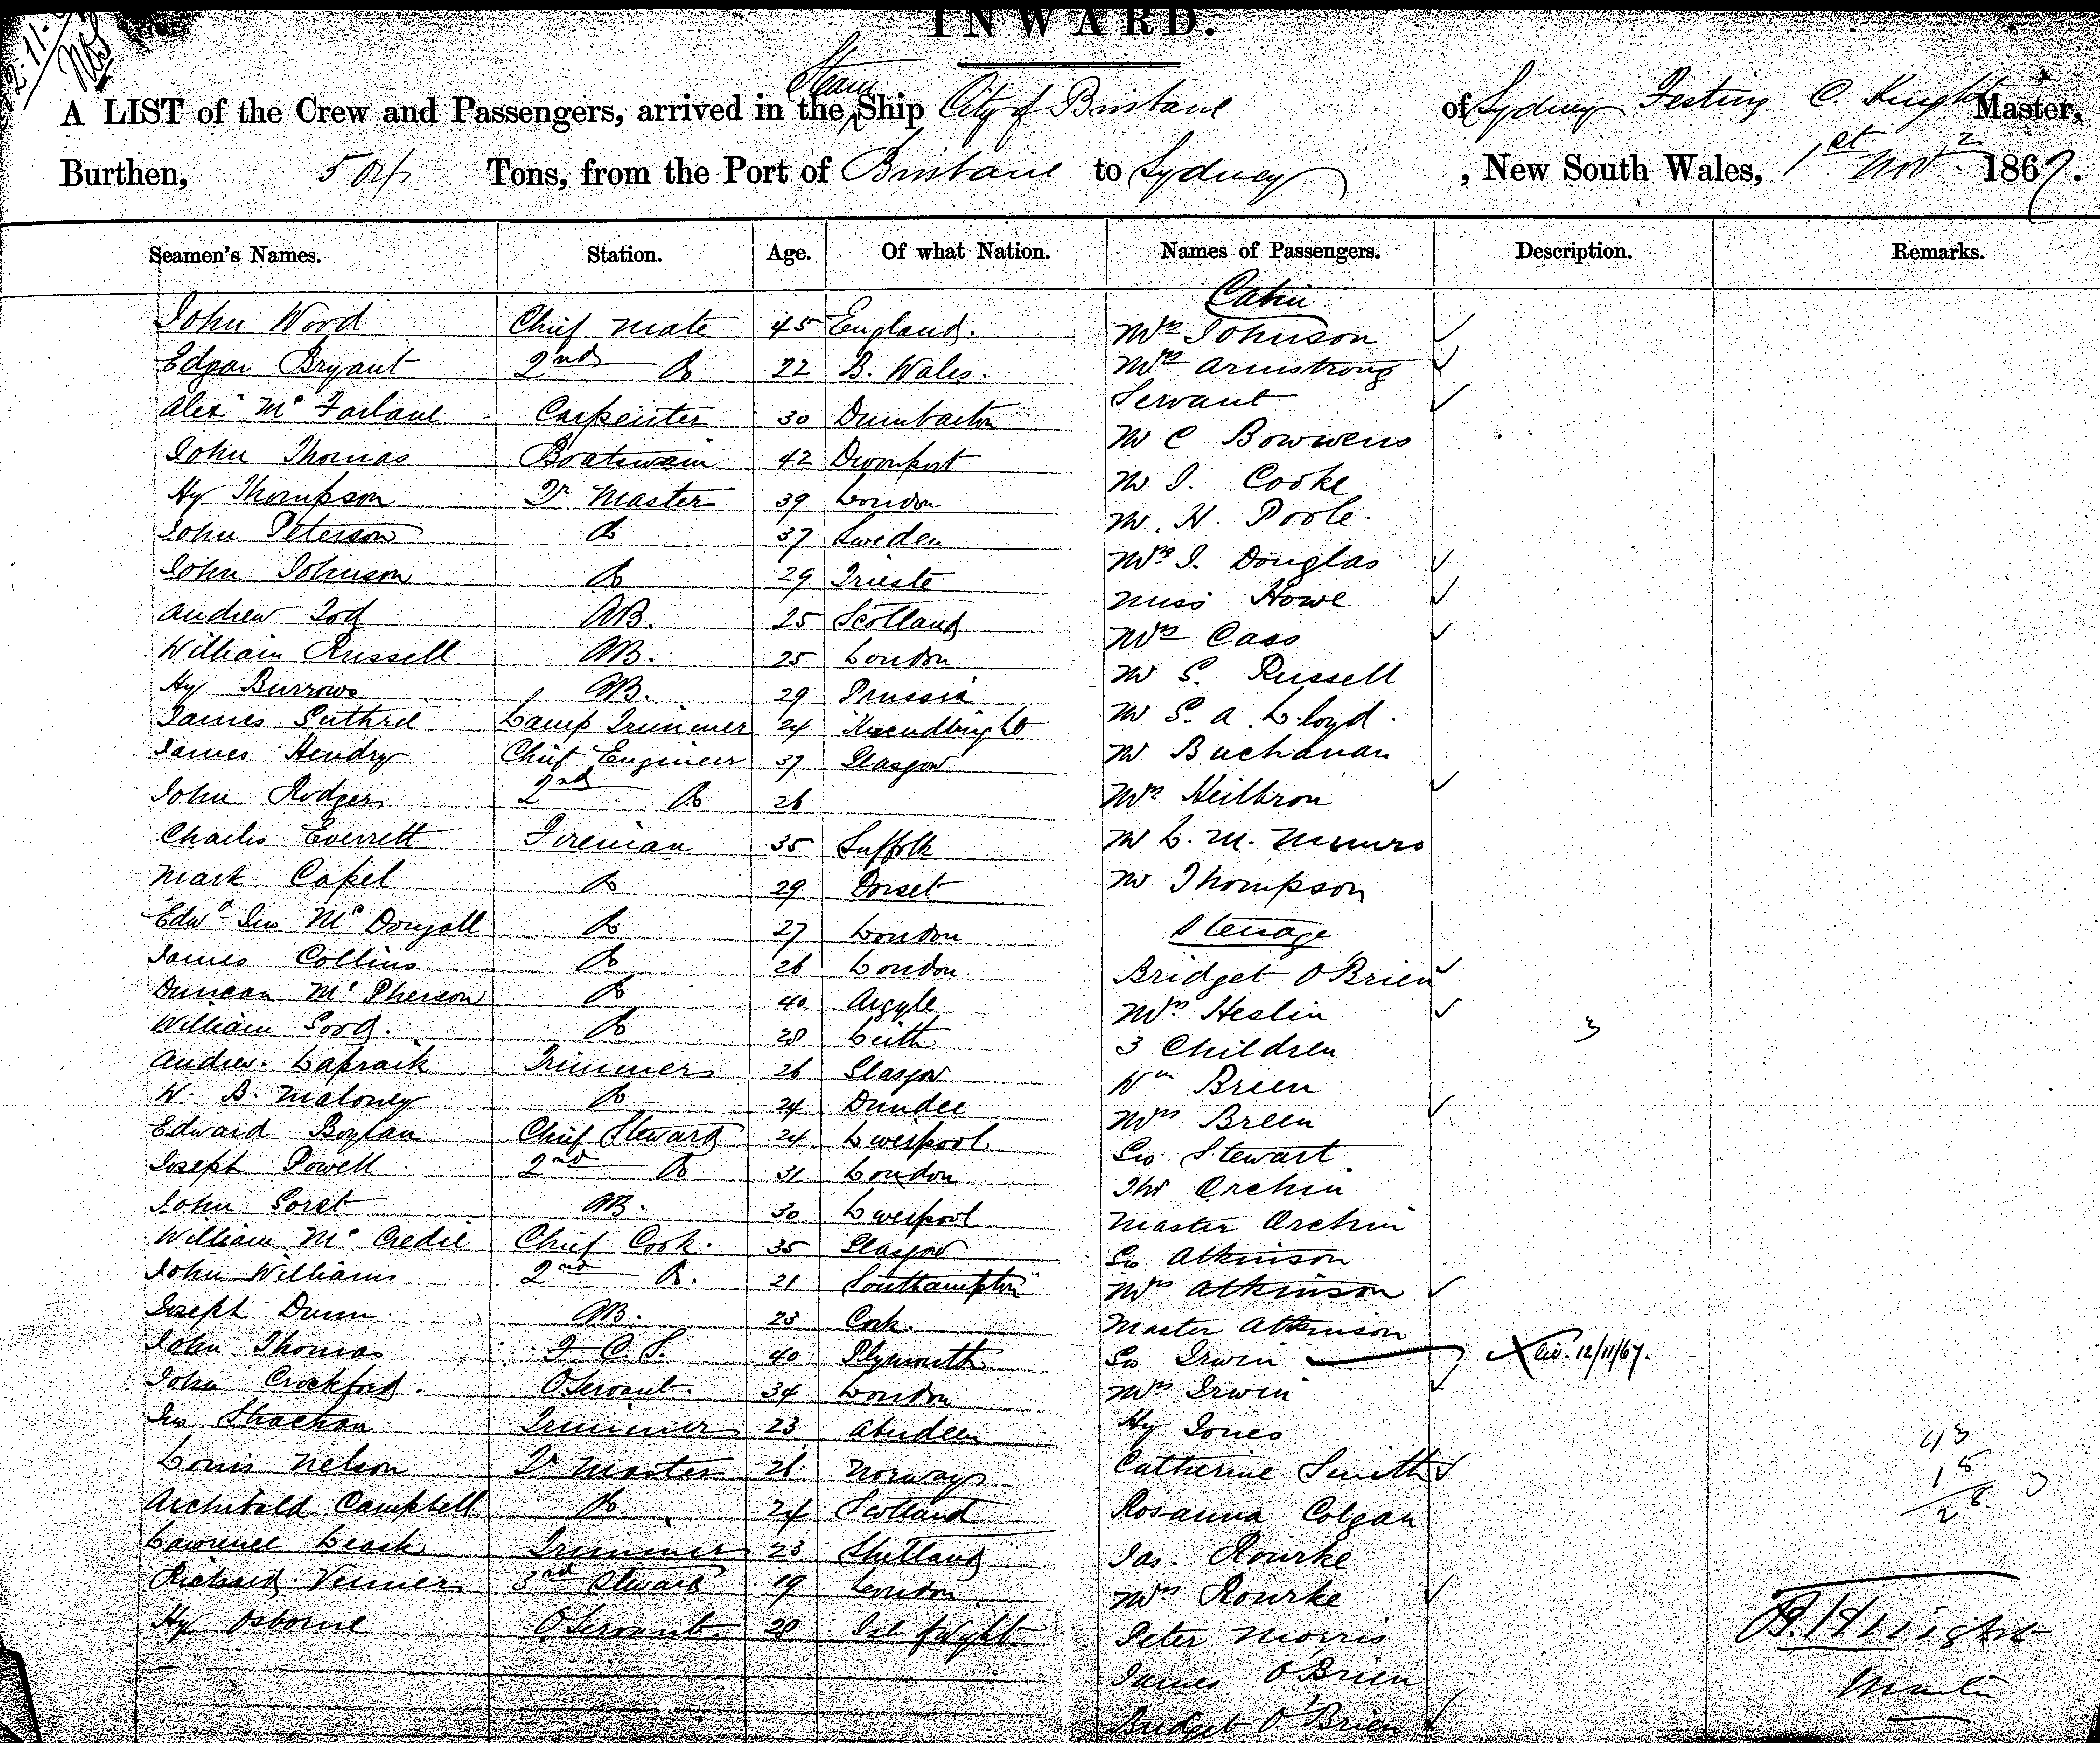 INWARD.
A LIST of the Crew and Passengers, arrived in the Steam Ship City of Brisbane of Sydney C. Knight Master,
Burthen, Tons, from the Port of Brisbane to Sydney, New South Wales, 1st Novr 1867.
Seamen's Names. Station. Age. Of what Nation. Names of Passengers. Description. Remarks.
Cabin
John Wood Chief Mate 45 England. Mrs Johnson
Edgar Bryant 2nd Do 22 S. Wales. Mrs Armstrong
Alexr Mc Farlane Carpenter 30 Dumbarton Servant
John Thomas Boatswain 42 Devonport Mr C Bowwens
Hy Thompson Qr Master 39 London Mr J. Cooke
John Peterson Do 37 Sweden Mr. H. Poole.
John Johnson Do 29 Trieste Mrs J. Douglas
Andrew Tod AB. 25 Scotland Miss Howe
William Russell AB. 25 London Mrs Cass
Hy Burrows AB. 29 Prussia Mr S. Russell
James Guthrie Lamp Trimmer 24 Mr S. A. Lloyd.
James Hendry Chief Engineer 37 Glasgow Mr Buchanan
John Rodger 2nd Do 26 Mrs Heilbron
Charles Everrett Fireman 35 Suffolk Mr L. M. Munro
Mark Capel Do 29 Dorset Mr Thompson
Edwd Jno Mc Dougall Do 27 London Steerage
James Collins Do 26 London Bridget O'Brien
Duncan Mc Pherson Do 40 Argyle Mrs Heslin
William Good. Do 28 Leith 3 Children 3
Andrew Lapraik Trimmer 26 Glasgow Wm Breen
W. B. Maloney Do 24 Dundee Mrs Breen
Edward Boylan Chief Steward 24 Liverpool Geo Stewart
Joseph Powell 2nd Do 31 London Thos Orchin
John Goret AB. 30 Liverpool Master Orchin
William Mc Credie Chief Cook. 35 Glasgow Geo Atkinson
John Williams 2nd Do. 21 Southampton Mrs Atkinson
Joseph Dunn AB. 23 Cork. Master Atkinson
John Thomas F. C. S. 40 Plymouth Geo Irwin 12/11/67.
John Crockford. O Servant. 34 London Mrs Irwin
Jno Strachan Trimmer 23 Aberdeen Hy Jones
Louis Nelson Qr Master 26 Norway Catherine Smith
Archibald Campbell Do 24 Scotland Rosanna Colgan
Lawrence Leask Trimmer 23 Shetland Jas. Rourke
Richard Venner 3rd Steward 19 London Mrs Rourke
Hy Osborne O Servant 28 Isle of Wight Peter Morris
James O'Brien
Bridget O'Brien
Knight
Master